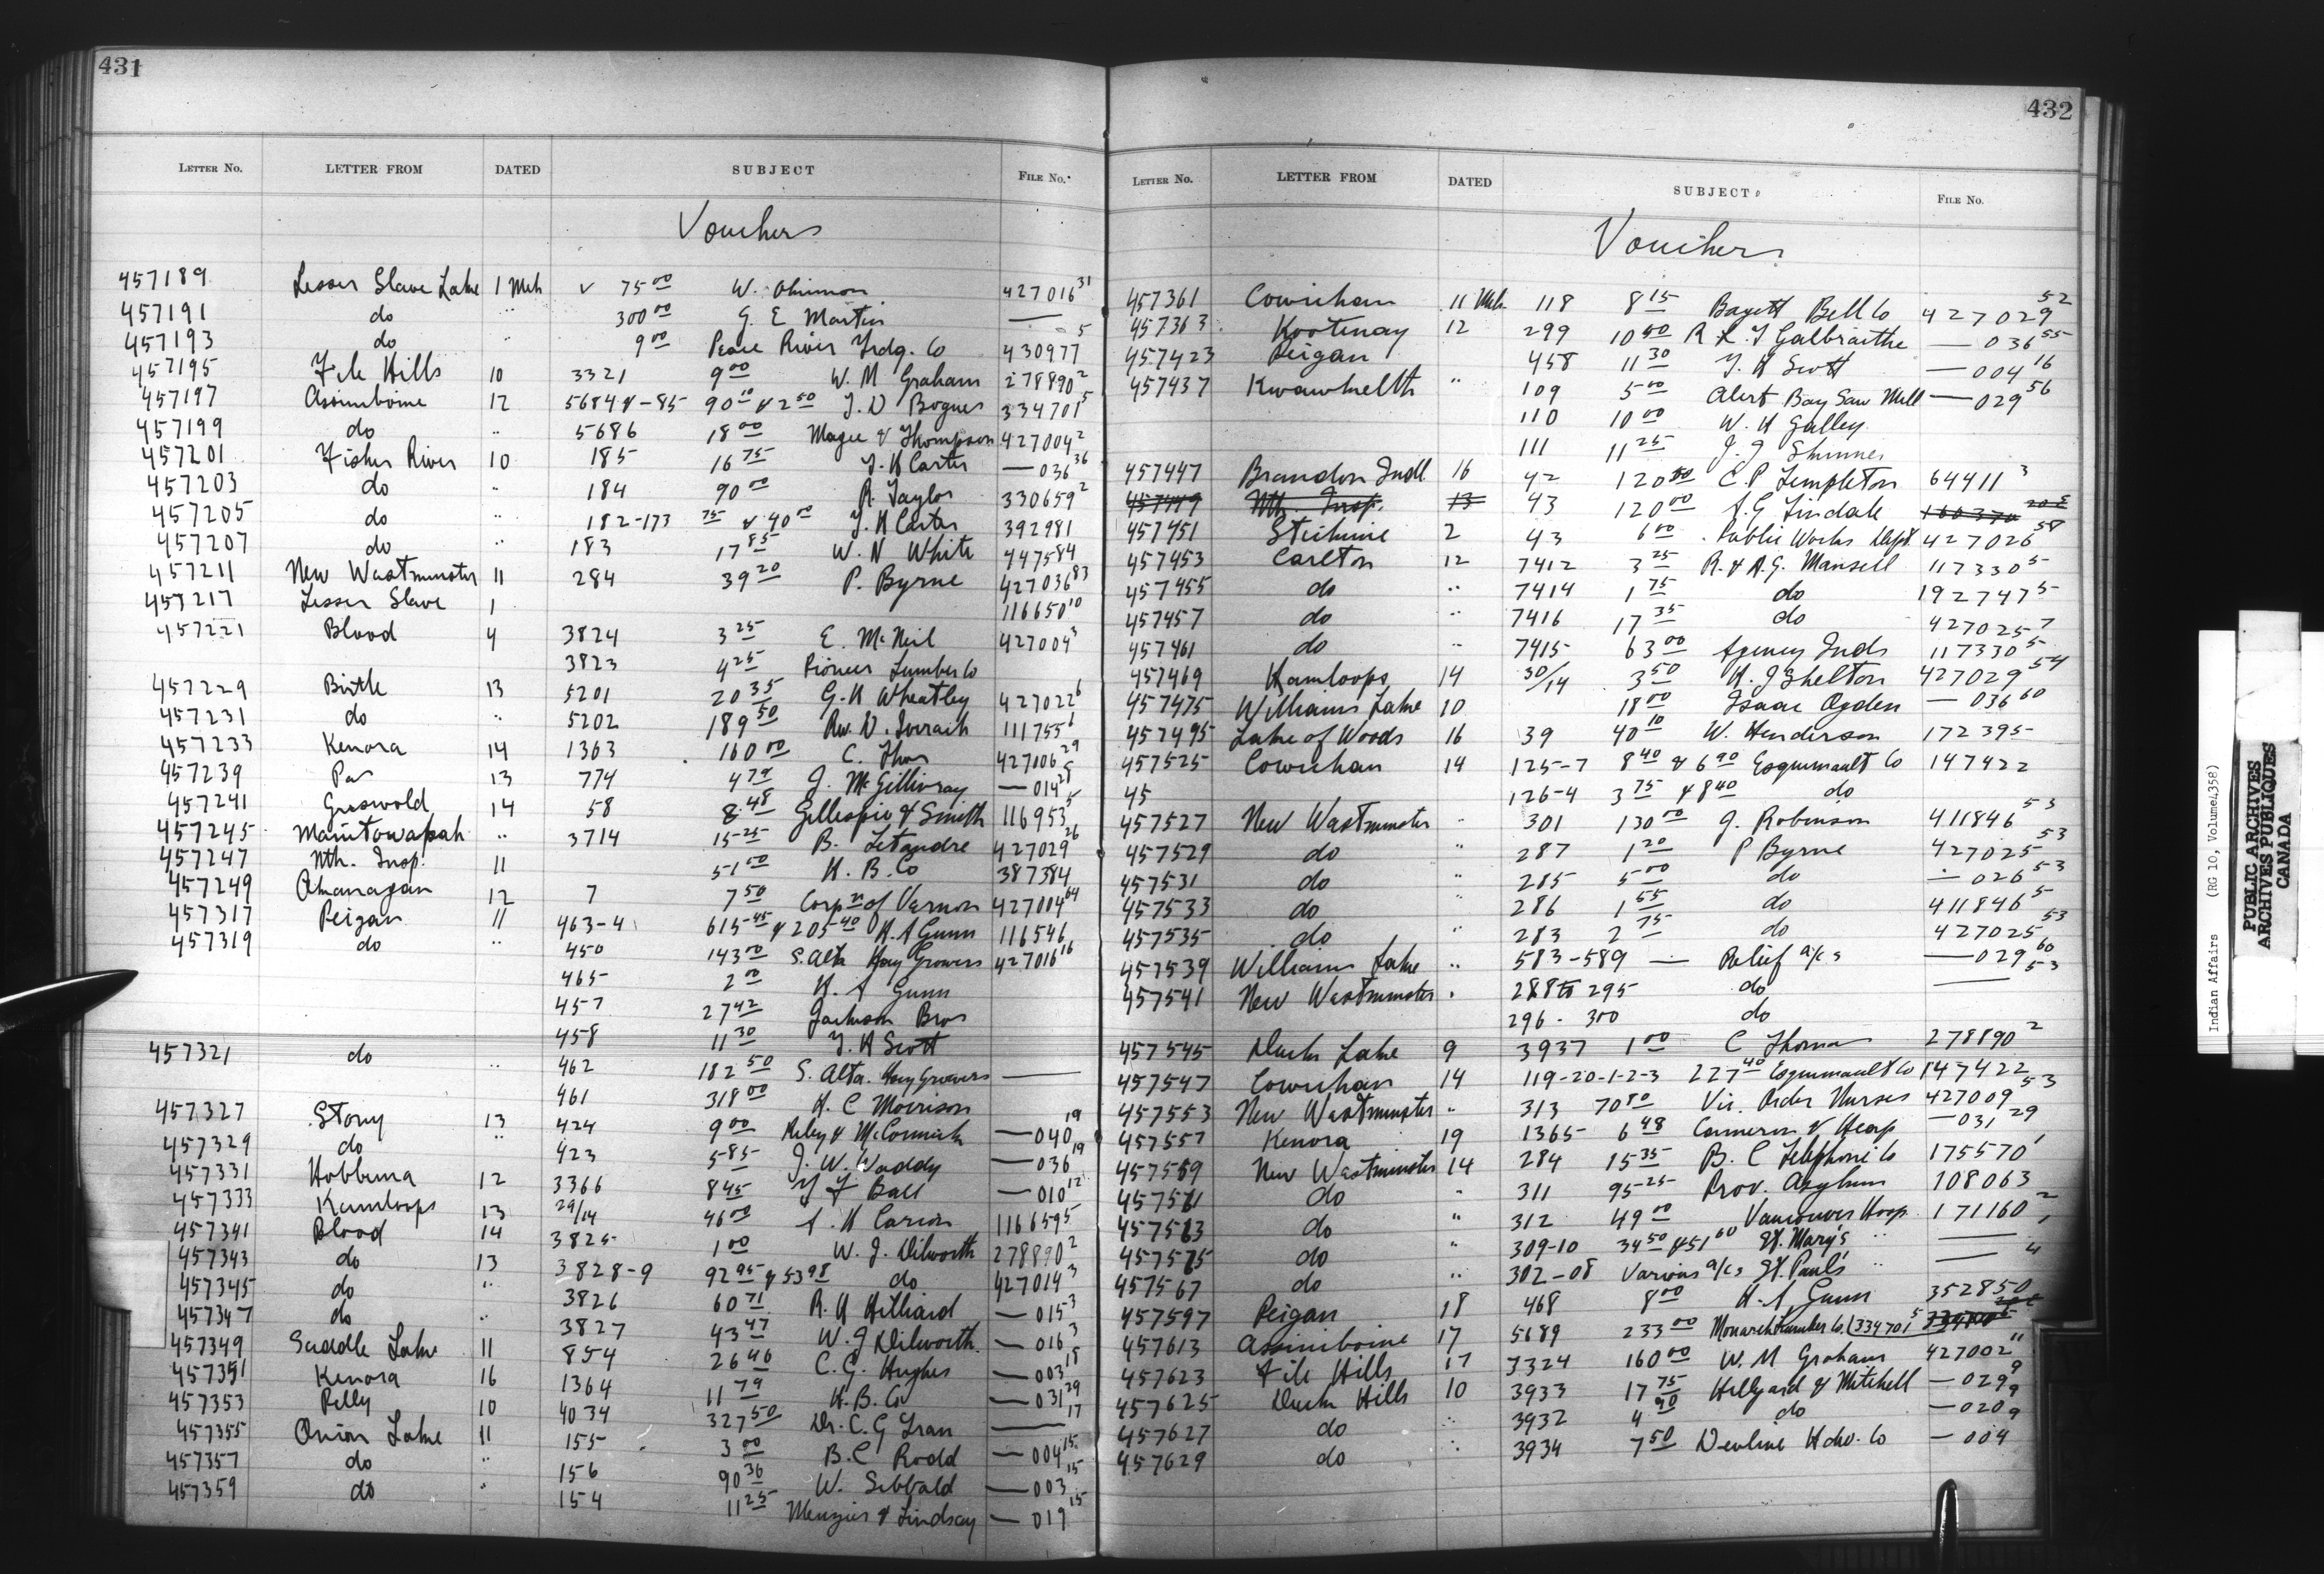 431
LETTER NO. LETTER FROM DATED SUBJECT FILE NO.
Vouchers
457189 Lesser Slave Lake 1 Mch v 75 00 W. 427016 31
457191 do " 300 00 G. E Martin —
457193 do " 9 00 Peace River Trdg. Co 430977 5
457195 File Hills 10 3321 9 00 W. M Graham 278890 2
457197 Assiniboine 12 5684 & -85 90 10 & 2 50 J. D Bogues 334701 5
457199 do " 5686 18 00 Magee & Thompson 427004 2
457201 Fisher River 10 185 16 75 T. H Carter — 036 36
457203 do " 184 90 00 R. Taylor 330659 2
457205 do " 182-173 75 & 40 00 T. H Carter 392981
457207 do " 183 17 85 W. N White 447584
457211 New Westminster 11 284 39 20 P. Byrne 427036 83
457217 Lesser Slave 1 116650 10
457221 Blood 4 3824 3 25 E. McNeil 427004 3
3823 4 25 Pioneer Lumber Co
457229 Birtle 13 5201 20 35 G. H Wheatley 427022 6
457231 do " 5202 189 50 Rev. D. Iverach 111755 6
457233 Kenora 14 1363 160 00 C. 427106 29
457239 Pas 13 774 4 79 J. McGillivray — 014 28
457241 Griswold 14 58 8 48 Gillespie & Smith 116953 5
457245 Manitowapah " 3714 15 25 B. Letandre 427029 26
457247 Nth. Insp. 11 51 00 H. B. Co 387384
457249 Okanagan 12 7 7 50 Corp n of Vernon 427004 64
457317 Peigan 11 463-4 615 45 & 205 40 H. A Gunn 116546
457319 do " 450 143 00 S. Alta Hay Growers 427016 16
465 2 00 H. A Gunn
457 27 42 Jackson Bros
458 11 30 T. H Scott
457321 do " 462 182 50 S. Alta. Hay Growers —
461 318 00 H. C Morrison
457327 Stony 13 424 9 00 Riley & McCormick — 040 19
457329 do " 423 5 85 J. W. Waddy — 036 19
457331 Hobbema 12 3366 8 45 Ball — 010 12
457333 Kamloops 13 29/14 46 00 A. H Carion 116659 5
457341 Blood 14 3825 1 00 W. J. Dilworth 278890 2
457343 do 13 3828-9 92 95 & 53 98 do 427014 3
457345 do " 3826 60 71 R. H Hilliard — 015 3
457347 do " 3827 43 47 W. J Dilworth. — 016 3
457349 Saddle Lake 11 854 26 46 C. G. Hughes — 003 18
457351 Kenora 16 1364 11 79 H. B. Co — 031 29
457353 Pelly 10 4034 327 50 Dr. C. G — 17
457355 Onion Lake 11 155 3 00 B. C Rodd — 004 15
457357 do " 156 90 36 W. Sibbald — 003 15
457359 do " 154 11 25 Menzies & Lindsay — 019 15
432
LETTER NO. LETTER FROM DATED SUBJECT FILE NO.
Vouchers
457361 Cowichan 11 Mch 118 8 15 Bell Co 427029 52
457363 Kootenay 12 299 10 50 R L. T Galbraith — 036 55
457423 Peigan 458 11 30 T. H Scott — 004 16
457437 Kwawkewlth " 109 5 00 Alert Bay Saw Mill — 029 56
110 10 00 W. H Galley
111 11 25 J. J Skinner
457447 Brandon Indl. 16 42 120 00 C. P Templeton 64411 3
457449 Nth. Insp. 13 43 120 00 A. G Tindale 160370
457451 Stickine 2 43 6 00 Public Works Dept. 427026 58
457453 Carlton 12 7412 3 25 R. & A. G. Mansell 117330 5
457455 do " 7414 1 75 do 192747 5
457457 do " 7416 17 35 do 427025 7
457461 do " 7415 63 00 Agency Inds 117330 5
457469 Kamloops 14 30/14 3 50 H. J Shelton 427029 54
457475 Williams Lake 10 18 00 Isaac Ogden — 036 60
457495 Lake of Woods 16 39 40 10 W. Henderson 172395
457525 Cowichan 14 125-7 8 40 & 6 90 Esquimault Co 147422
45 126-4 3 75 & 8 40 do
457527 New Westminster " 301 130 00 J. Robinson 411846 53
457529 do " 287 1 20 P Byrne 427025 53
457531 do " 285 5 00 do — 026 53
457533 do " 286 1 55 do 411846 5
457535 do " 283 2 75 do 427025 53
457539 Williams Lake " 583-589 — Relief a/cs — 029 60
457541 New Westminster " 288 to 295 do — 53
296 - 300 do
457545 Duck Lake 9 3937 1 00 C Thomas 278890 2
457547 Cowichan 14 119-20-1-2-3 227 40 Esquimault Co 147422
457553 New Westminster " 313 70 80 Vic. Order Nurses 427009 53
457557 Kenora 19 1365 6 48 Cameron & Heap — 031 29
457559 New Westminster 14 284 15 35 B. C Telephone Co 175570 1
457561 do " 311 95 25 Prov. Asylum 108063
457563 do " 312 49 00 Vancouver Hosp. 171160 2
457575 do " 309-10 34 50 & 51 60 St. Mary's " —
457567 do " 302-08 Various a/cs St. Paul's " — 4
457597 Peigan 18 468 8 00 H. A Gunn 352850
457613 Assiniboine 17 5689 233 00 Monarch Lumber Co. (334701 5
457623 File Hills 17 3324 160 00 W. M Graham 427002 11
457625 Duck Hills 10 3933 17 75 Hillyard & Mitchell — 029 9
457627 do " 3932 4 90 do — 020 9
457629 do " 3934 7 50 Devline Hdw. Co — 004 9
Indian Affairs (RG 10, Volume 4358)
PUBLIC ARCHIVES
ARCHIVES PUBLIQUES
CANADA